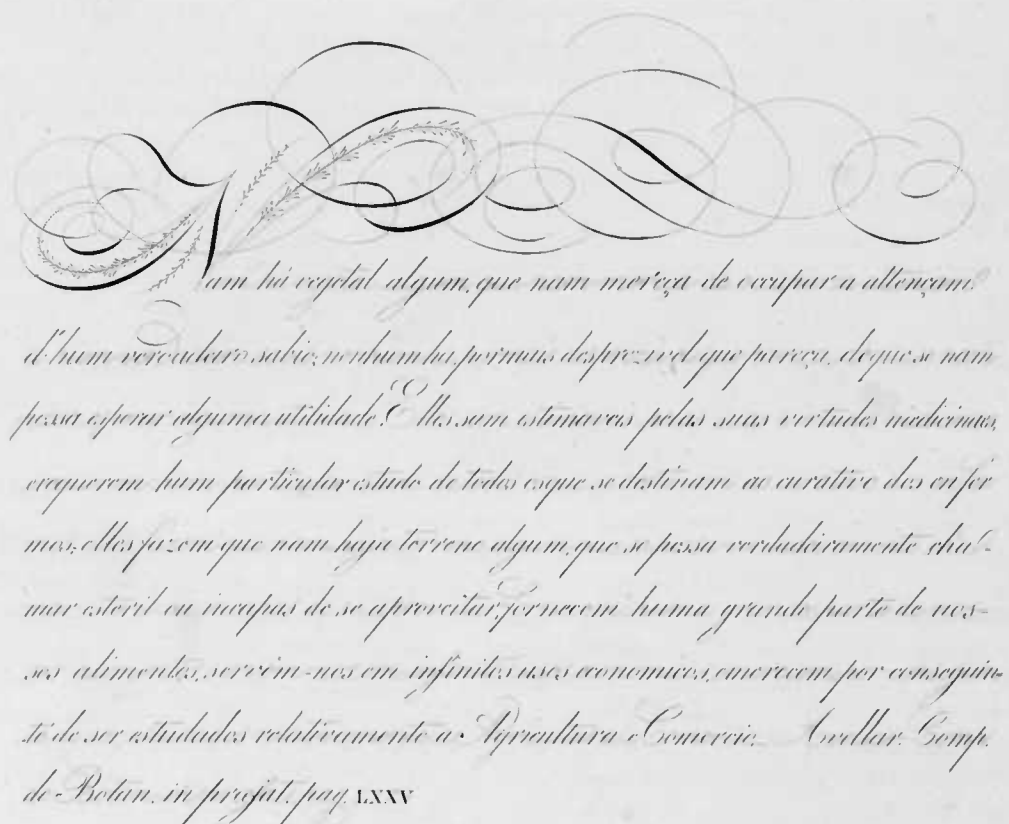 Nam há vegetal algum, que nam mereça de occupar a attençam
d'hum verdadeiro sabio; nenhum ha, por mais desprezivel que pareça, de que se nam
possa esperar alguma utilidade. Elles sam estimaveis pelas suas virtudes medicinaes,
e requerem hum particular estudo de todos os que se destinam ao curativo dos enfer
mos; elles fazem que nam haja terreno algum, que se possa verdadeiramente cha-
mar esteril ou incapas de se aproveitar, fornecem huma grande parte de nos-
sos alimentos, servem-nos em infinitos usos economicos, e merecem por conseguin-
te de ser estudados relativamente a Agricultura e Comercio. Avellar. Comp.
de Botan. in præfat. pag. LXXV